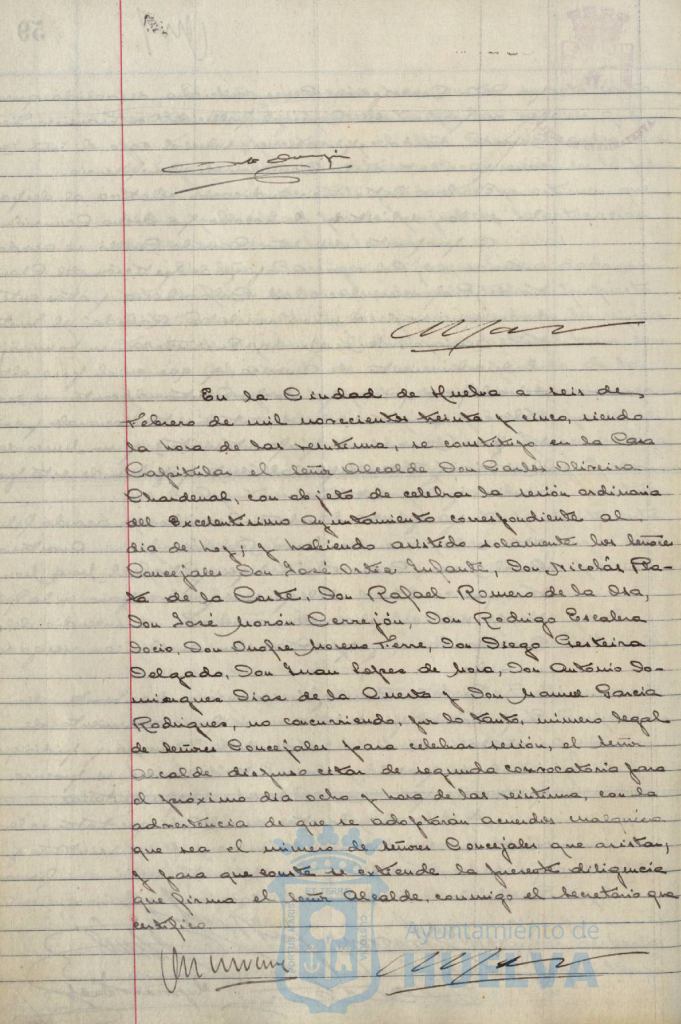 En la Ciudad de Huelva a seis de
Febrero de mil novecientos treinta y cinco, siendo
la hora de las veintiuna, se constituyó en la Casa
Capitular el Señor Alcalde Don Carlos Oliveira
Chardenal, con objeto de celebrar la sesión ordinaria
del Excelentísimo Ayuntamiento correspondiente al
dia de hoy; y habiendo asistido solamente los señores
Concejales Don José Ortea Infante, Don Nicolás Pla-
ta de la Corte, Don Rafael Romero de la Osa,
Don José Morón Cerrejón, Don Rodrigo Escalera
Socio, Don Onofre Moreno Ferre, Don Diego Gesteira
Delgado, Don Juan Lopez de Mora, Don Antonio Do-
minguez Diaz de la Cuesta y Don Manuel Garcia
Rodriguez, no concurriendo, por lo tanto, número legal
de señores Concejales para celebrar sesión, el Señor
Alcalde dispuso citar de segunda convocatoria para
el próximo dia ocho y hora de las veintiuna, con la
advertencia de que se adoptarán acuerdos cualquiera
que sea el número de señores Concejales que asistan,
y para que conste se extiende la presente diligencia
que firma el Señor Alcalde, conmigo el Secretario que
certifico.
Ayuntamiento de
HUELVA